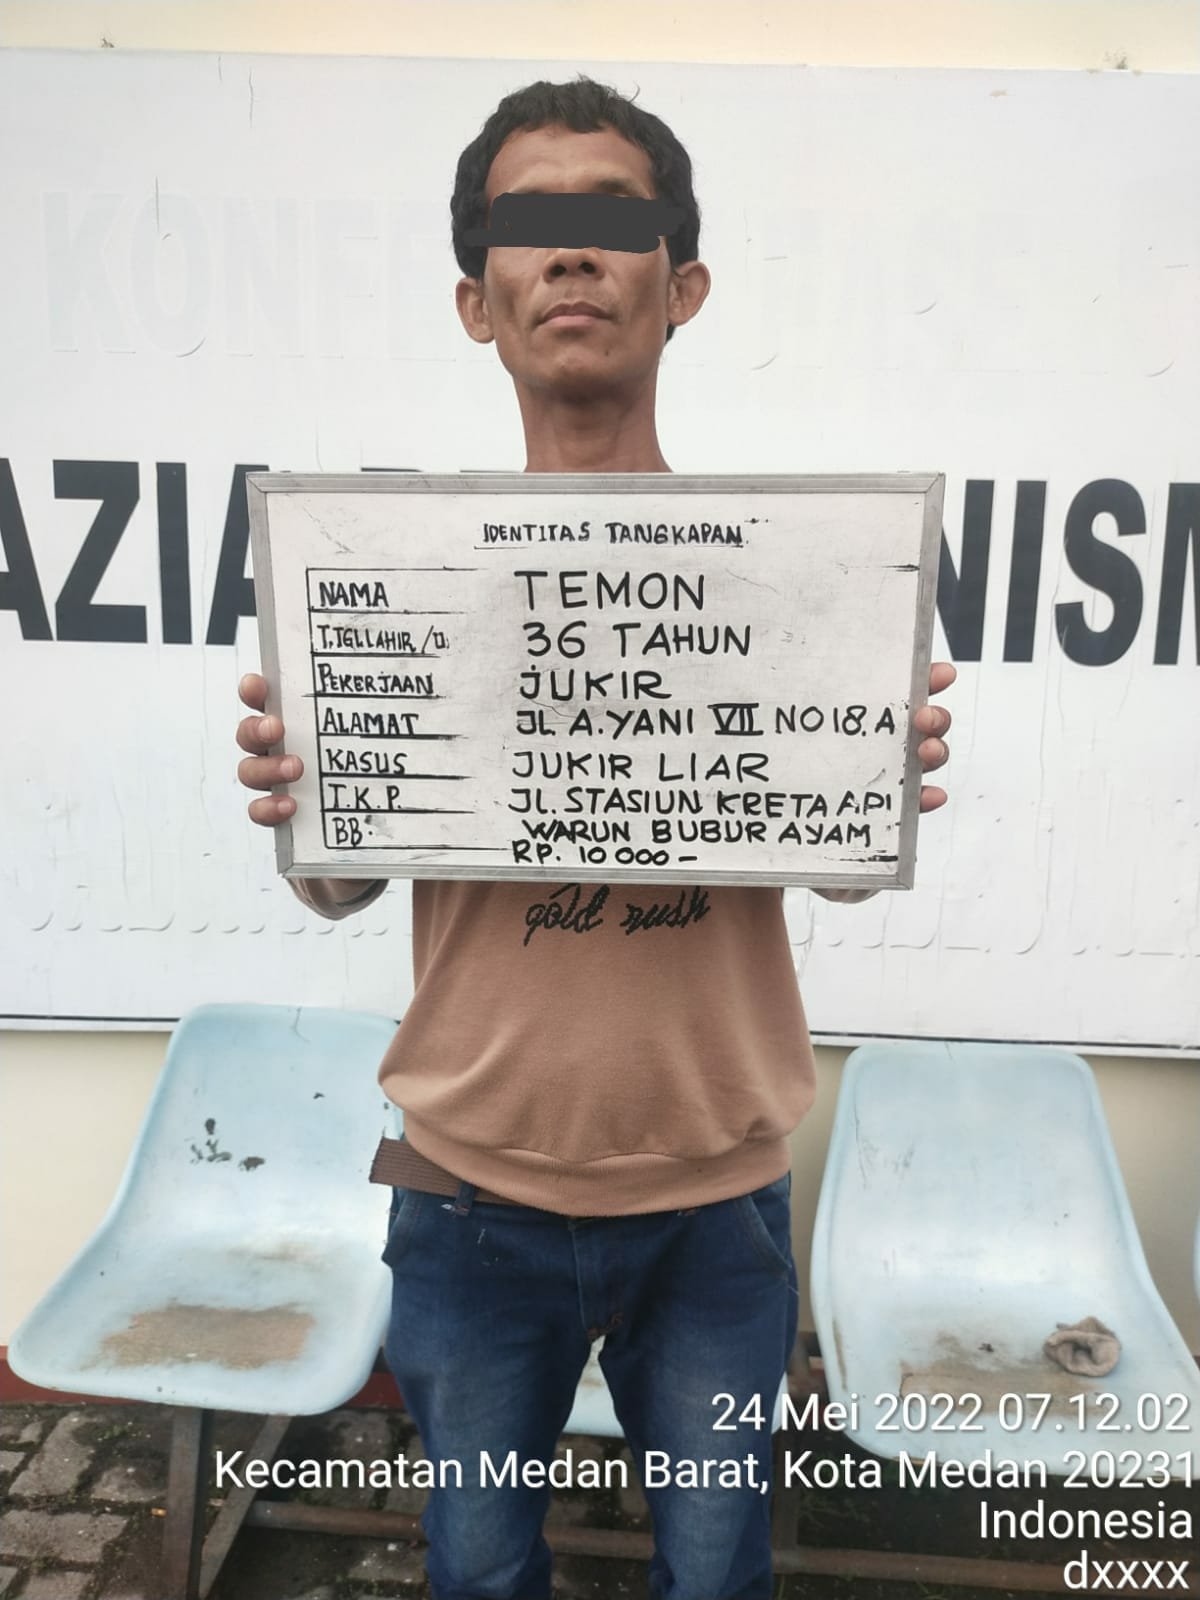 KONFE
AZIA
NISM
IDENTITAS TANGKAPAN
NAMA TEMON
T.TGLLAHIR/U. 36 TAHUN
PEKERJAAN JUKIR
ALAMAT JL A.YANI VII NO 18.A
KASUS JUKIR LIAR
T.K.P. JL. STASIUN KRETA API
WARUN BUBUR AYAM
BB. RP. 10 000 -
gold rush
24 Mei 2022 07.12.02
Kecamatan Medan Barat, Kota Medan 20231
Indonesia
dxxxx